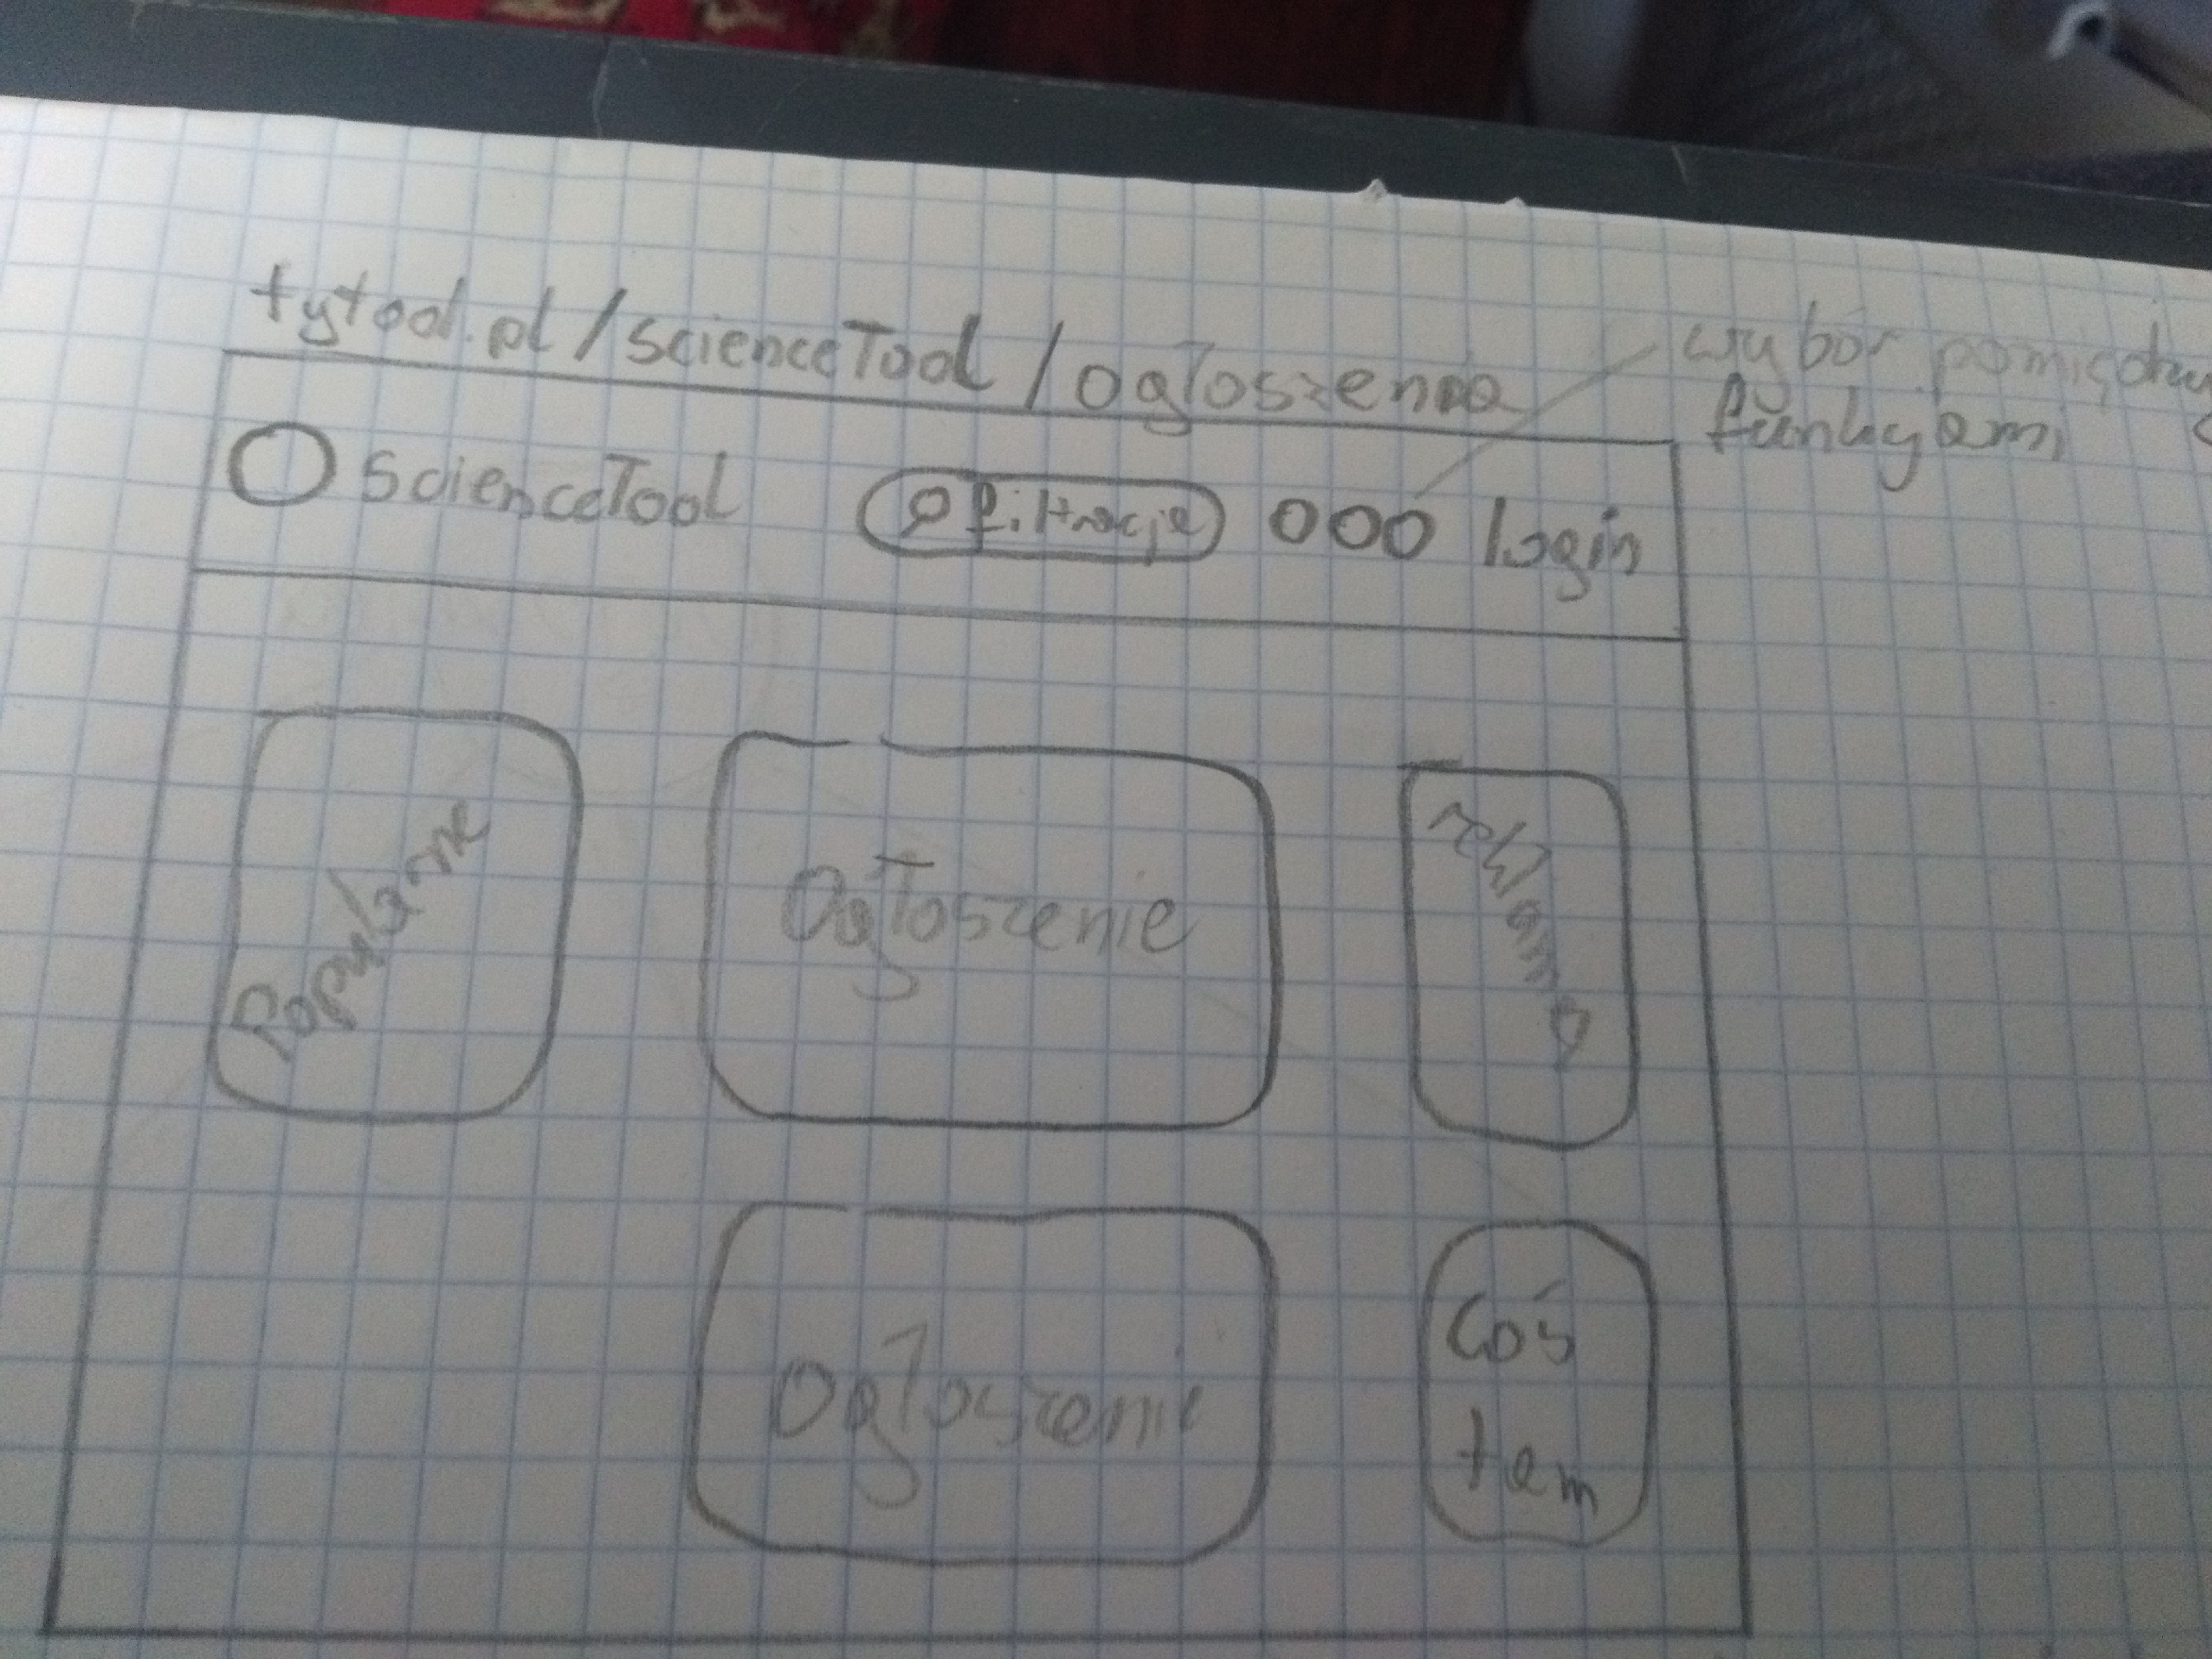 tytool.pl/scienceTool/ogłoszenia
wybór pomiędzy
funkcjami
ScienceTool filtracja login
Popularne
Ogłoszenie
reklama
Ogłoszenie
Coś
tam